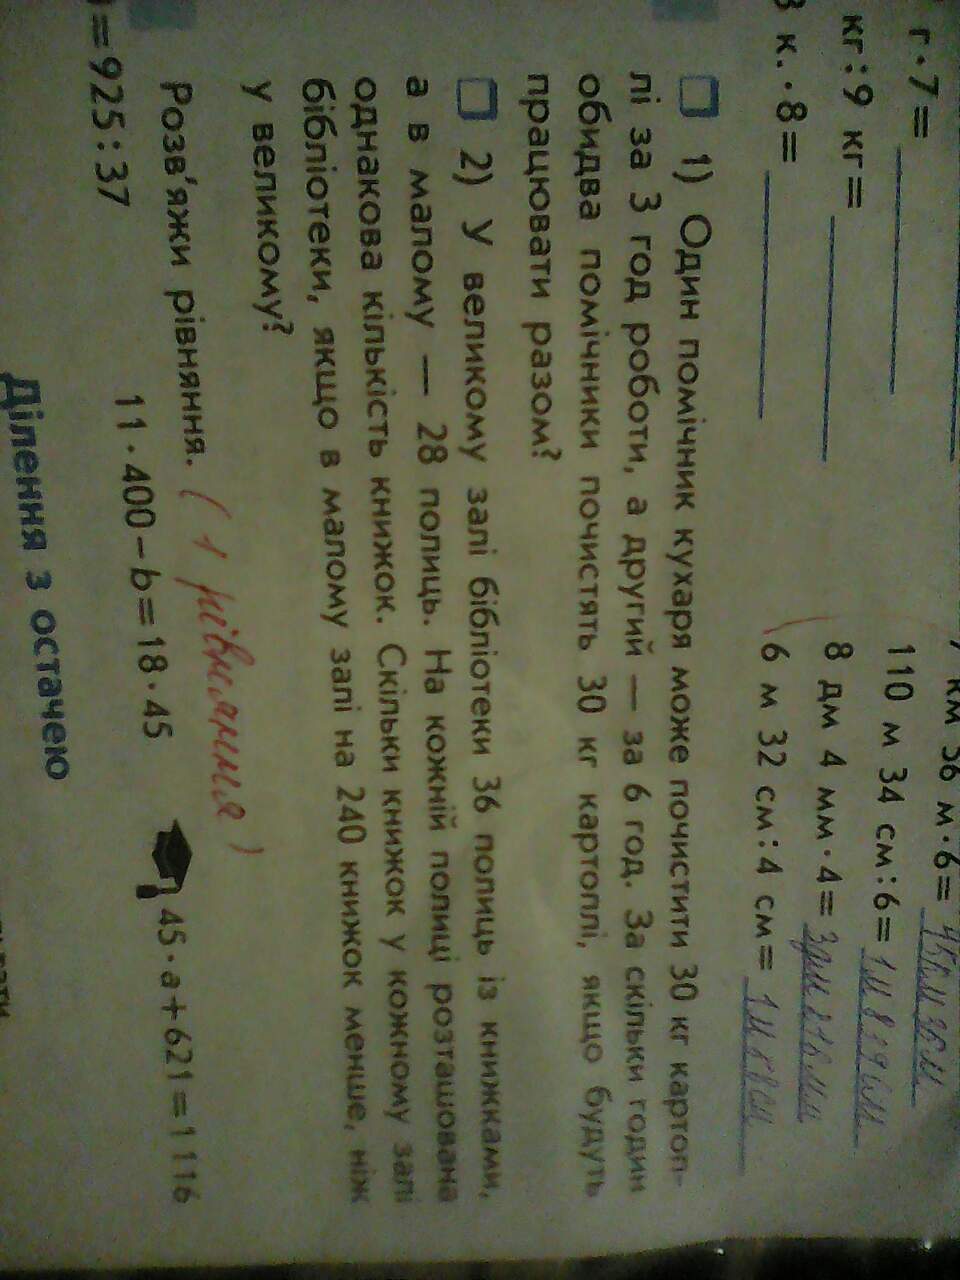 г·7=
кг:9 кг=
к.·8=
км 36 м·6=
110 м 34 см:6=
8 дм 4 мм·4=
6 м 32 см:4 см=
1) Один помічник кухаря може почистити 30 кг картоп-
лі за 3 год роботи, а другий — за 6 год. За скільки годин
обидва помічники почистять 30 кг картоплі, якщо будуть
працювати разом?
2) У великому залі бібліотеки 36 полиць із книжками,
а в малому — 28 полиць. На кожній полиці розташована
однакова кількість книжок. Скільки книжок у кожному залі
бібліотеки, якщо в малому залі на 240 книжок менше, ніж
у великому?
Розв'яжи рівняння. (1 рівняння)
=925:37 11·400-b=18·45 45·a+621=1116
Ділення з остачею